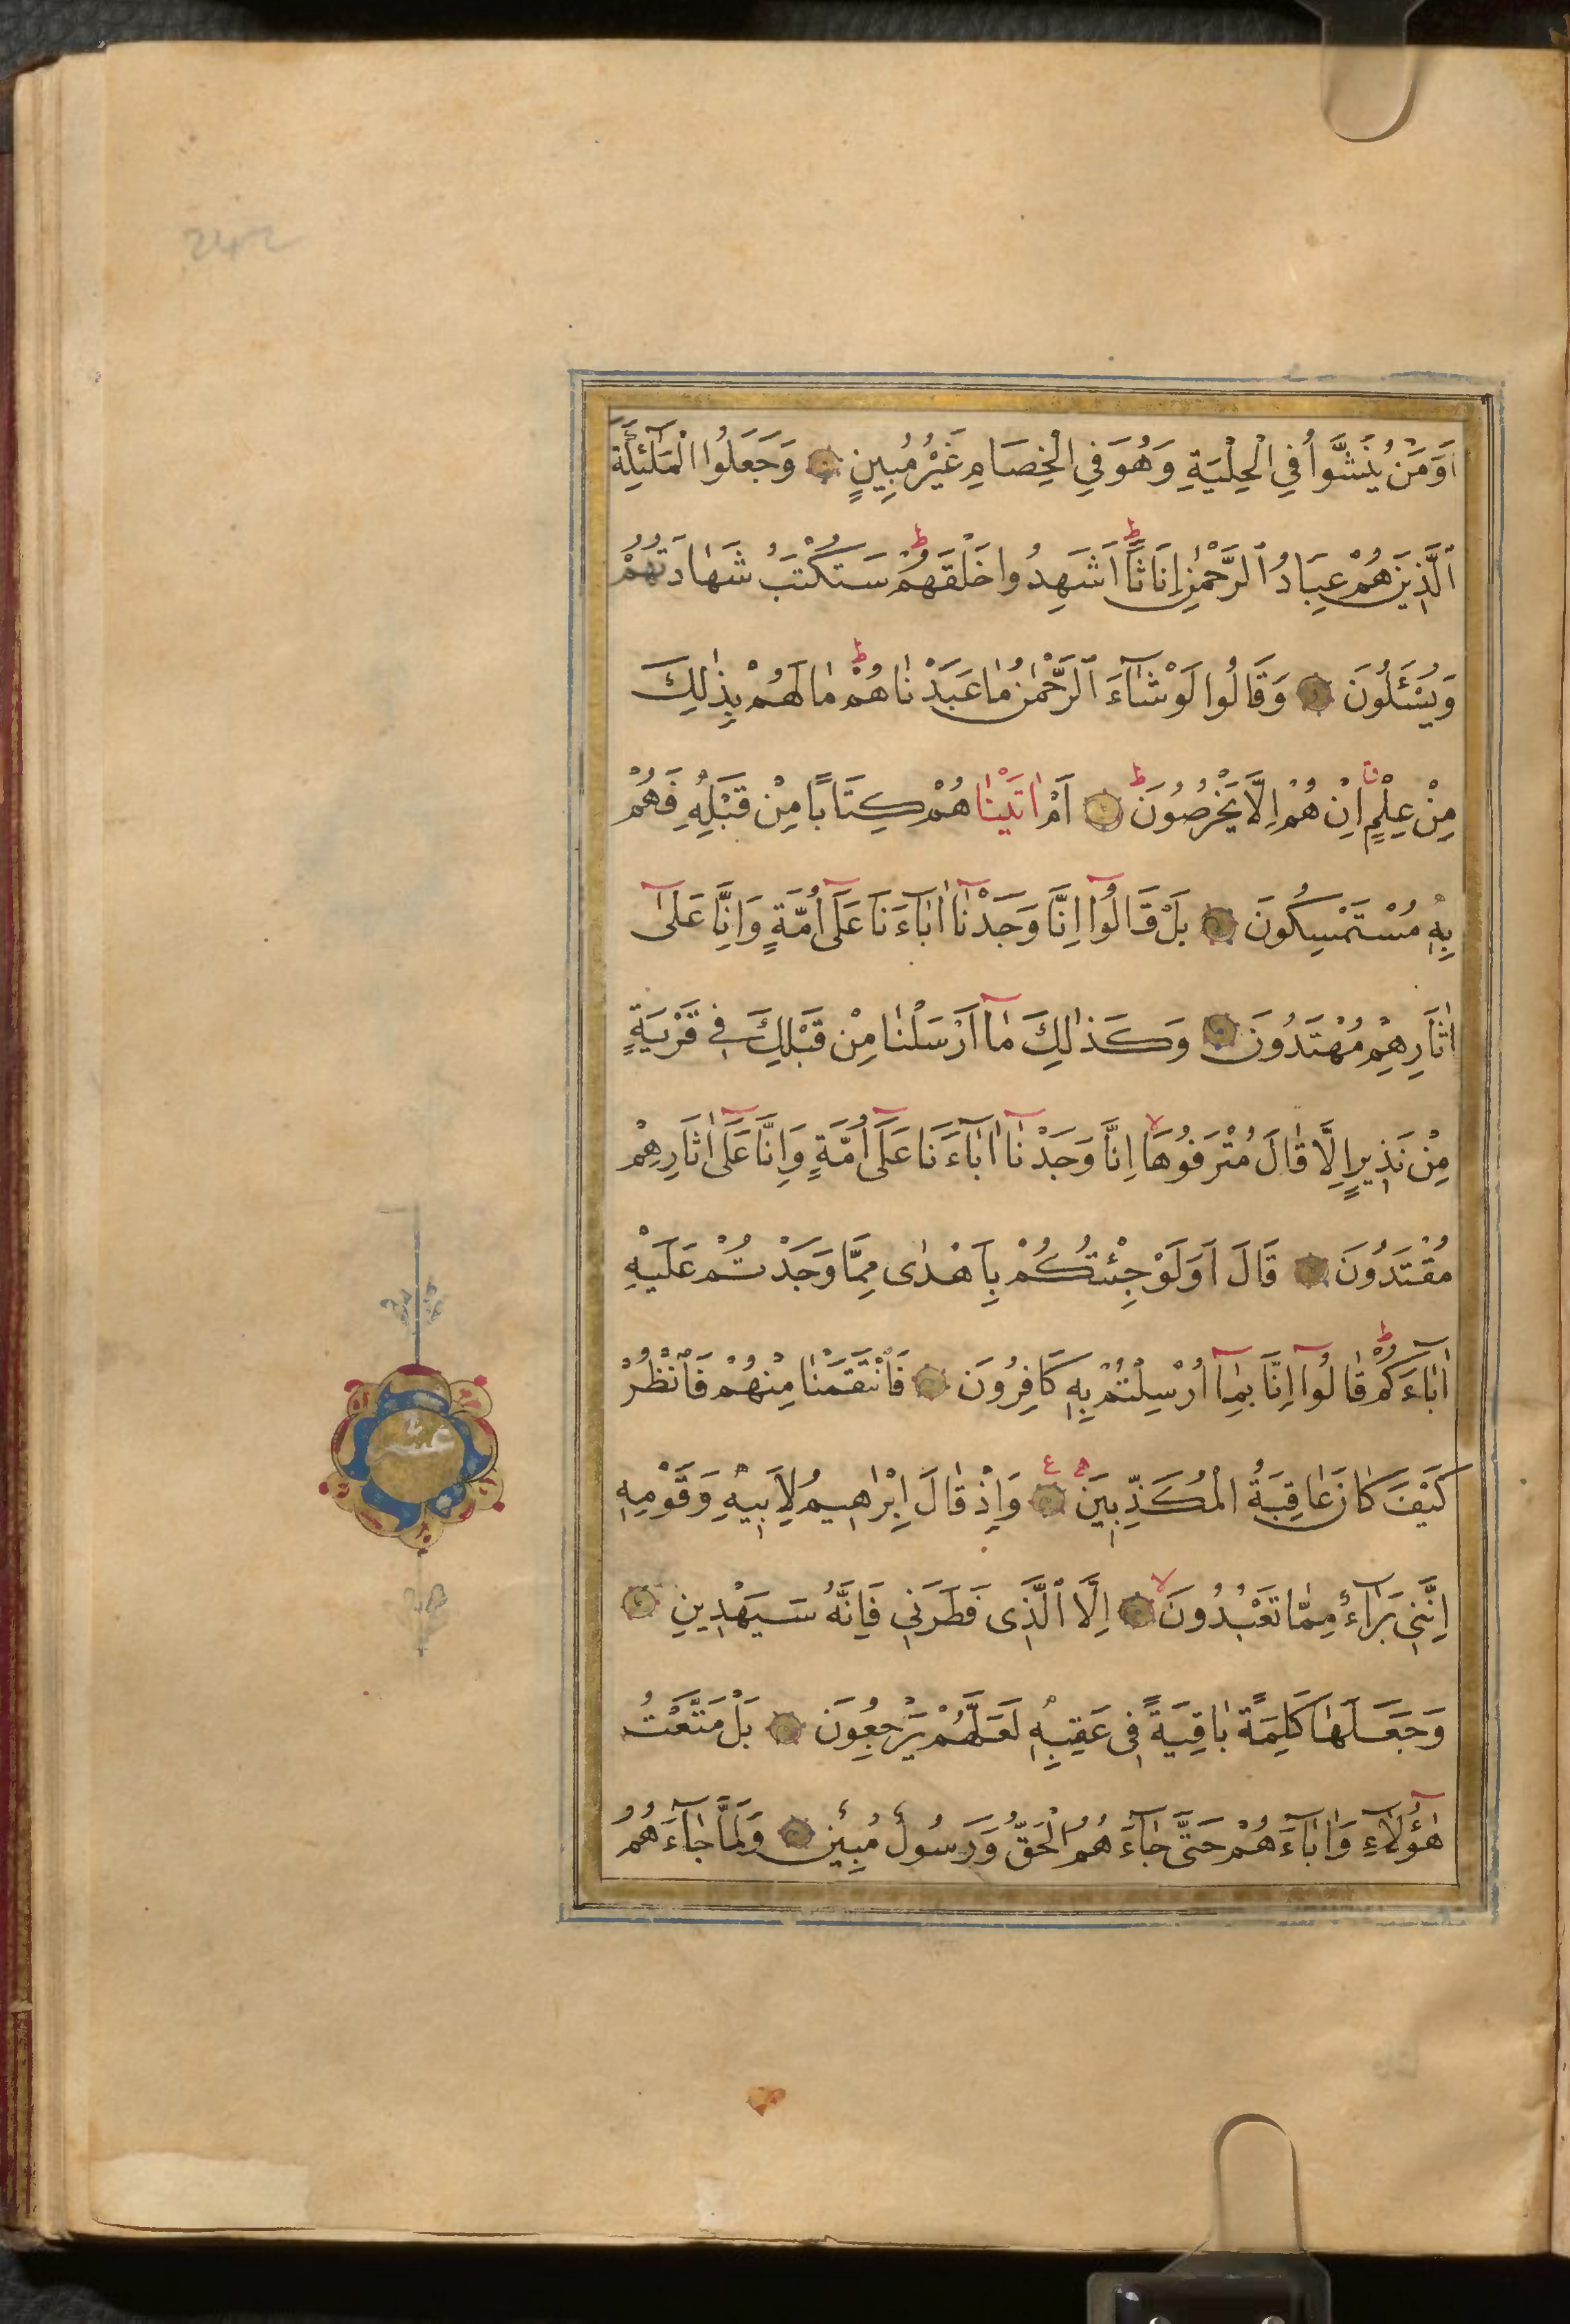 اَوَمَنْ يُنَشَّؤُا فِي الْحِلْيَةِ وَهُوَ فِي الْخِصَامِ غَيْرُ مُبِينٍ وَجَعَلُوا الْمَلٰٓئِكَةَ
الَّذِينَ هُمْ عِبَادُ الرَّحْمٰنِ اِنَاثًا ط اَشَهِدُوا خَلْقَهُمْ ط سَتُكْتَبُ شَهَادَتُهُمْ
وَيُسْئَلُونَ وَقَالُوا لَوْ شَآءَ الرَّحْمٰنُ مَا عَبَدْنَاهُمْ ط مَا لَهُمْ بِذٰلِكَ
مِنْ عِلْمٍ ق اِنْ هُمْ اِلَّا يَخْرُصُونَ ط اَمْ اٰتَيْنَاهُمْ كِتَابًا مِنْ قَبْلِهِ فَهُمْ
بِهِ مُسْتَمْسِكُونَ بَلْ قَالُوٓا اِنَّا وَجَدْنَآ اٰبَآءَنَا عَلٰٓى اُمَّةٍ وَاِنَّا عَلٰٓى
اٰثَارِهِمْ مُهْتَدُونَ وَكَذٰلِكَ مَآ اَرْسَلْنَا مِنْ قَبْلِكَ فِي قَرْيَةٍ
مِنْ نَذِيرٍ اِلَّا قَالَ مُتْرَفُوهَا لا اِنَّا وَجَدْنَآ اٰبَآءَنَا عَلٰٓى اُمَّةٍ وَاِنَّا عَلٰٓى اٰثَارِهِمْ
مُقْتَدُونَ قَالَ اَوَلَوْ جِئْتُكُمْ بِاَهْدٰى مِمَّا وَجَدْتُمْ عَلَيْهِ
اٰبَآءَكُمْ ط قَالُوٓا اِنَّا بِمَآ اُرْسِلْتُمْ بِهِ كَافِرُونَ فَانْتَقَمْنَا مِنْهُمْ فَانْظُرْ
كَيْفَ كَانَ عَاقِبَةُ الْمُكَذِّبِينَ ع وَاِذْ قَالَ اِبْرٰهِيمُ لِاَبِيهِ وَقَوْمِهِ
اِنَّنِي بَرَآءٌ مِمَّا تَعْبُدُونَ لا اِلَّا الَّذِى فَطَرَنِي فَاِنَّهُ سَيَهْدِينِ
وَجَعَلَهَا كَلِمَةً بَاقِيَةً فِى عَقِبِهِ لَعَلَّهُمْ يَرْجِعُونَ بَلْ مَتَّعْتُ
هٰٓؤُلَآءِ وَاٰبَآءَهُمْ حَتّٰى جَآءَهُمُ الْحَقُّ وَرَسُولٌ مُبِينٌ وَلَمَّا جَآءَهُمُ
عشر
242